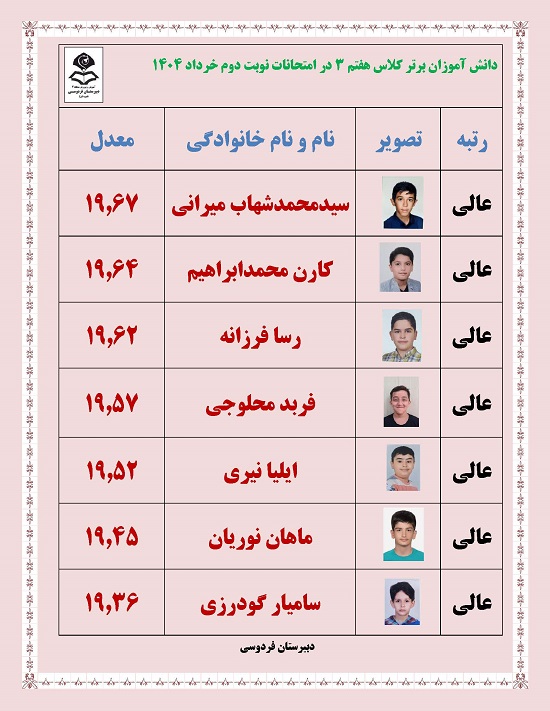 دانش آموزان برتر کلاس هفتم ۳ در امتحانات نوبت دوم خرداد ۱۴۰۴
دبیرستان فردوسی
رتبه تصویر نام و نام خانوادگی معدل
عالی سیدمحمدشهاب میرانی ۱۹,۶۷
عالی کارن محمدابراهیم ۱۹,۶۴
عالی رسا فرزانه ۱۹,۶۲
عالی فربد محلوجی ۱۹,۵۷
عالی ایلیا نیری ۱۹,۵۲
عالی ماهان نوریان ۱۹,۴۵
عالی سامیار گودرزی ۱۹,۳۶
دبیرستان فردوسی